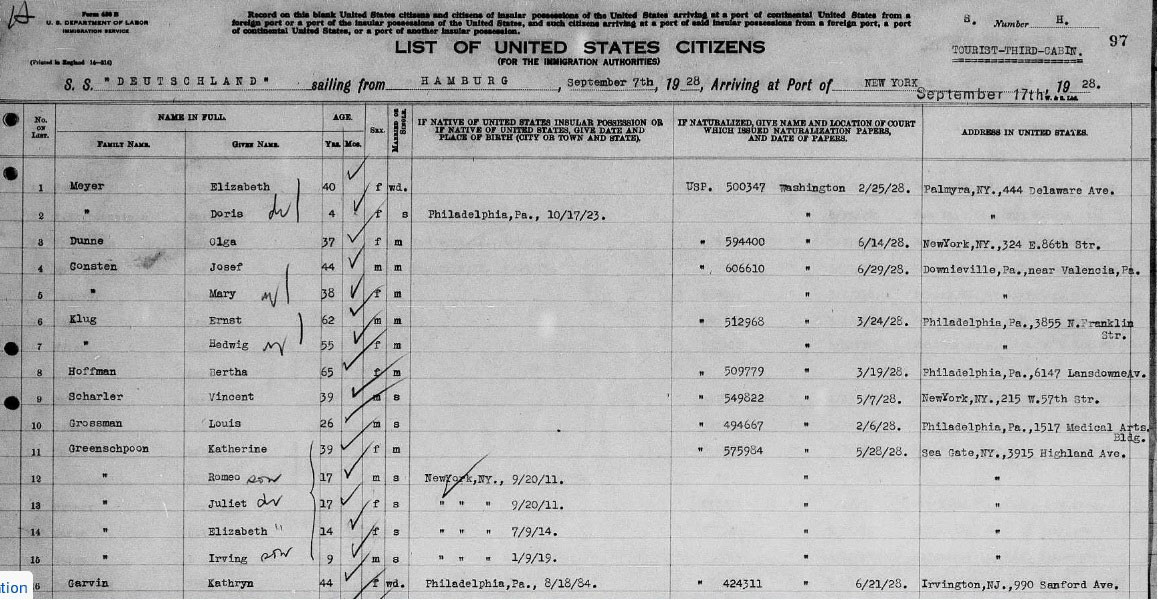 Form 630 B
U. S. DEPARTMENT OF LABOR
IMMIGRATION SERVICE
(Printed in England 16—816)
Record on this blank United States citizens and citizens of insular possessions of the United States arriving at a port of continental United States from a
foreign port or a port of the insular possessions of the United States, and such citizens arriving at a port of said insular possessions from a foreign port, a port
of continental United States, or a port of another insular possession.
LIST OF UNITED STATES CITIZENS
(FOR THE IMMIGRATION AUTHORITIES)
S. Number H.
TOURIST-THIRD-CABIN. 97
S. S. "DEUTSCHLAND" sailing from HAMBURG, September 7th, 1928, Arriving at Port of NEW YORK September 17th, 1928.
No. on List. NAME IN FULL. AGE. Sex. Married or Single. IF NATIVE OF UNITED STATES INSULAR POSSESSION OR IF NATIVE OF UNITED STATES, GIVE DATE AND PLACE OF BIRTH (CITY OR TOWN AND STATE). IF NATURALIZED, GIVE NAME AND LOCATION OF COURT WHICH ISSUED NATURALIZATION PAPERS, AND DATE OF PAPERS. ADDRESS IN UNITED STATES.
Family Name. Given Name. Yrs. Mos.
1 Meyer Elizabeth 40 f wd. USP. 500347 Washington 2/25/28. Palmyra,NY.,444 Delaware Ave.
2 " Doris 4 f s Philadelphia,Pa., 10/17/23. " "
3 Dunne Olga 37 f m " 594400 " 6/14/28. NewYork,NY.,324 E.86th Str.
4 Consten Josef 44 m m " 606610 " 6/29/28. Downieville,Pa.,near Valencia,Pa.
5 " Mary 38 f m " "
6 Klug Ernst 62 m m " 512968 " 3/24/28. Philadelphia,Pa.,3855 N.Franklin
Str.
7 " Hedwig 55 f m " "
8 Hoffman Bertha 65 f m " 509779 " 3/19/28. Philadelphia,Pa.,6147 LansdowneAv.
9 Scharler Vincent 39 m s " 549822 " 5/7/28. NewYork,NY.,215 W.57th Str.
10 Grossman Louis 26 m s " 494667 " 2/6/28. Philadelphia,Pa.,1517 Medical Arts.
Bldg.
11 Greenschpoon Katherine 39 f m " 575984 " 5/28/28. Sea Gate,NY.,3915 Highland Ave.
12 " Romeo son 17 m s NewYork,NY., 9/20/11. " "
13 " Juliet 17 f s " " " 9/20/11. " "
14 " Elizabeth " 14 f s " " " 7/9/14. " "
15 " Irving son 9 m s " " " 1/9/19. " "
6 Garvin Kathryn 44 f wd. Philadelphia,Pa., 8/18/84. " 424311 " 6/21/28. Irvington,NJ.,990 Sanford Ave.
tion